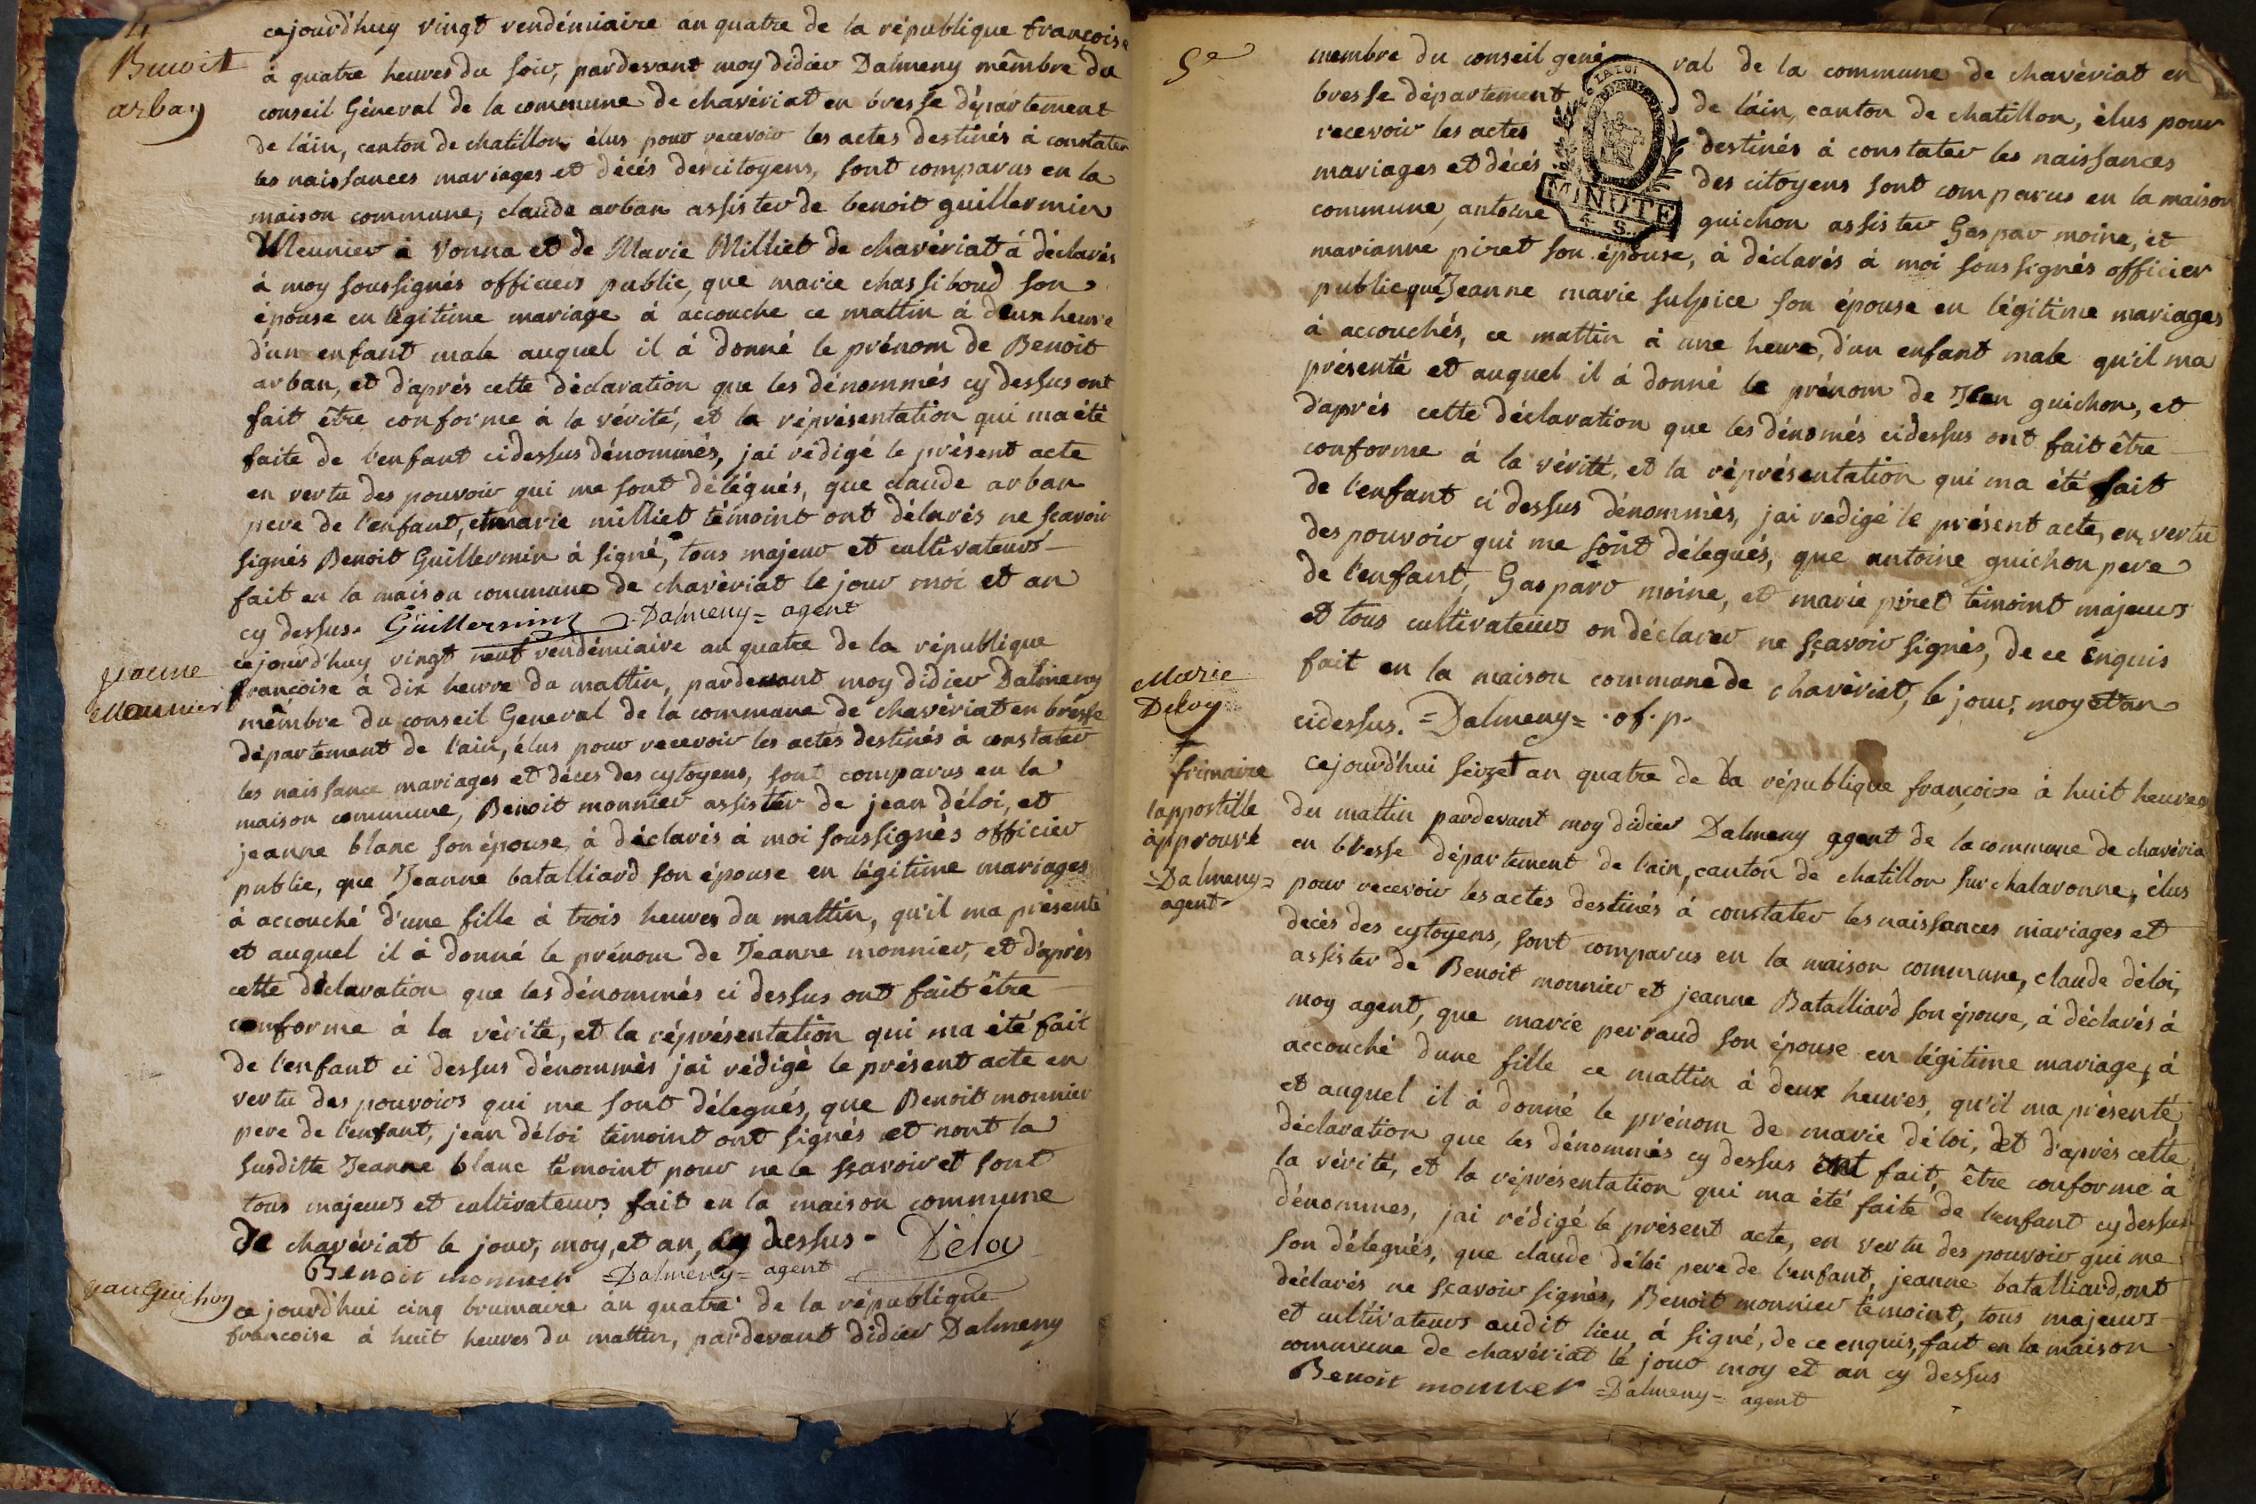 4
Benoit
arban
cejourd'huy vingt vendémiaire an quatre de la république françoise
à quatre heures du soir, pardevant moy didier Dalmeny mêmbre du
conseil Géneral de la commune de chavériat en bresse département
de láin, canton de chatillon élus pour recevoir les actes destinés à constater
les naissances mariages et décés des citoyens, sont comparus en la
maison commune, claude arban assister de benoit guillermin
Meunier à Vonna et de Marie Milliet de chavériat á déclarés
á moy soussignés officiers public, que marie chassiboud son
épouse en légitime mariage á accouche ce mattin à deux heure
d'un enfant male auquel il á donné le prénom de Benoit
arban, et d'aprés cette déclaration que les dénommés cy dessus ont
fait être conforme à la vérité, et la réprésentation qui ma été
faite de l'enfant cidessus dénommés, jai rédigé le présent acte
en vertu des pouvoir qui me sont délégués, que claude arban
pere de l'enfant, et marie milliet témoint ont délarés ne scavoir
signés Benoit Guillermin á signé, tous majeur et cultivateurs
fait en la maison commune de chavériat le jour moi et an
cy dessus. Guillermin =Dalmeny= agent
jeanne
Monnier
cejourd'huy vingt neuf vendémiaire an quatre de la république
françoise à dix heure du mattin, pardevant moy didier Dalmeny
mêmbre du conseil General de la commune de chavériat en bresse
département de l'ain, élus pour recevoir les actes destinés à constater
les naissance mariages et déces des cytoyens, sont comparus en la
maison commune, Benoit monnier assister de jean déloi, et
jeanne blanc son épouse, à déclarés à moi soussignés officier
public, que Jeanne batalliard son épouse en légitime mariages
à accouché d'une fille à trois heures du mattin, qu'il ma présenté
et auquel il à donné le prénom de Jeanne monnier, et d'aprés
cette déclaration que les dénommés ci dessus ont fait être
conforme á la vérité, et la réprésentation qui ma été fait
de l'enfant ci dessus dénommés jai rédigé le présent acte en
vertu des pouvoirs qui me sont délegués, que Benoit monnier
pere de l'enfant, jean déloi témoint ont signés et nont la
susditte Jeanne blanc témoint pour ne le sçavoir et sont
tous majeurs et cultivateurs fait en la maison commune
De chavériat le jour, moy, et an, cy dessus. Déloy
Benoit monnier =Dalmeny= agent
jean Guichon
ce jourd'hui cinq brumaire àn quatre de la république
francoise à huit heures du mattin, pardevant didier Dalmeny
5e
LA LOI
MINUTE
4. S.
membre du conseil géné ral de la commune de chavériat en
bresse département de láin, canton de chatillon, élus pour
recevoir les actes destinés à constater les naissances
mariages et décés des citoyens sont comparus en la maison
commune, antoine guichon assister Gaspar moine, et
marianne piret son épouse, à déclarés á moi soussignés officier
public que Jeanne marie sulpice son épouse en légitime mariages
à accouchés, ce mattin á une heure, d'un enfant male qu'il ma
présenté et auquel il á donné le prénom de Jean guichon, et
d'aprés cette déclaration que les dénomés cidessus ont fait être
conforme á la vérité, et la réprésentation qui ma été fait
de l'enfant ci dessus dénommés, jai redigé le présent acte, en vertu
des pouvoir qui me sont délegués, que antoine guichon pere
de l'enfant, Gaspard moine, et marie piret témoint majeurs
et tous cultivateurs on déclarer ne sçavoir signés, de ce enquis
fait en la maison commune de chavériat, le jour, moy et an
cidessus. =Dalmeny= .of.p.
Marie
Deloy
+
frimaire
lappostille
àpprouvé
=Dalmeny=
agent
cejourd'hui seize + an quatre de la république françoise à huit heures
du mattin pardevant moy didier Dalmeny agent de la commune de chavéria
en bresse département de l'ain, canton de chatillon sur chalaronne, élus
pour recevoir les actes destinés á constater les naissances mariages et
decés des cytoyens, sont comparus en la maison commune, claude déloi,
assister de Benoit monnier et jeanne Batalliard son épouse, á déclarés á
moy agent, que marie perraud son épouse en légitime mariage, á
accouché dune fille ce mattin à deux heures, qu'il ma présenté,
et auquel il á donné le prénom de marie déloi, et d'aprés cette
déclaration que les dénommés cy dessus ont fait, être conforme à
la vérité, et la réprésentation qui ma été faite de l'enfant cy dessus
dénommes, jai rédigé le présent acte, en vertu des pouvoir qui me
son délegués, que claude déloi pere de l'enfant, jeanne batalliard, ont
déclarés ne sçavoir signés, Benoit monnier témoint, tous majeurs
et cultivateurs audit lieu á signé, de ce enquis, fait en la maison
commune de chavériat le jour moy et an cy dessus
Benoit monnier =Dalmeny= agent